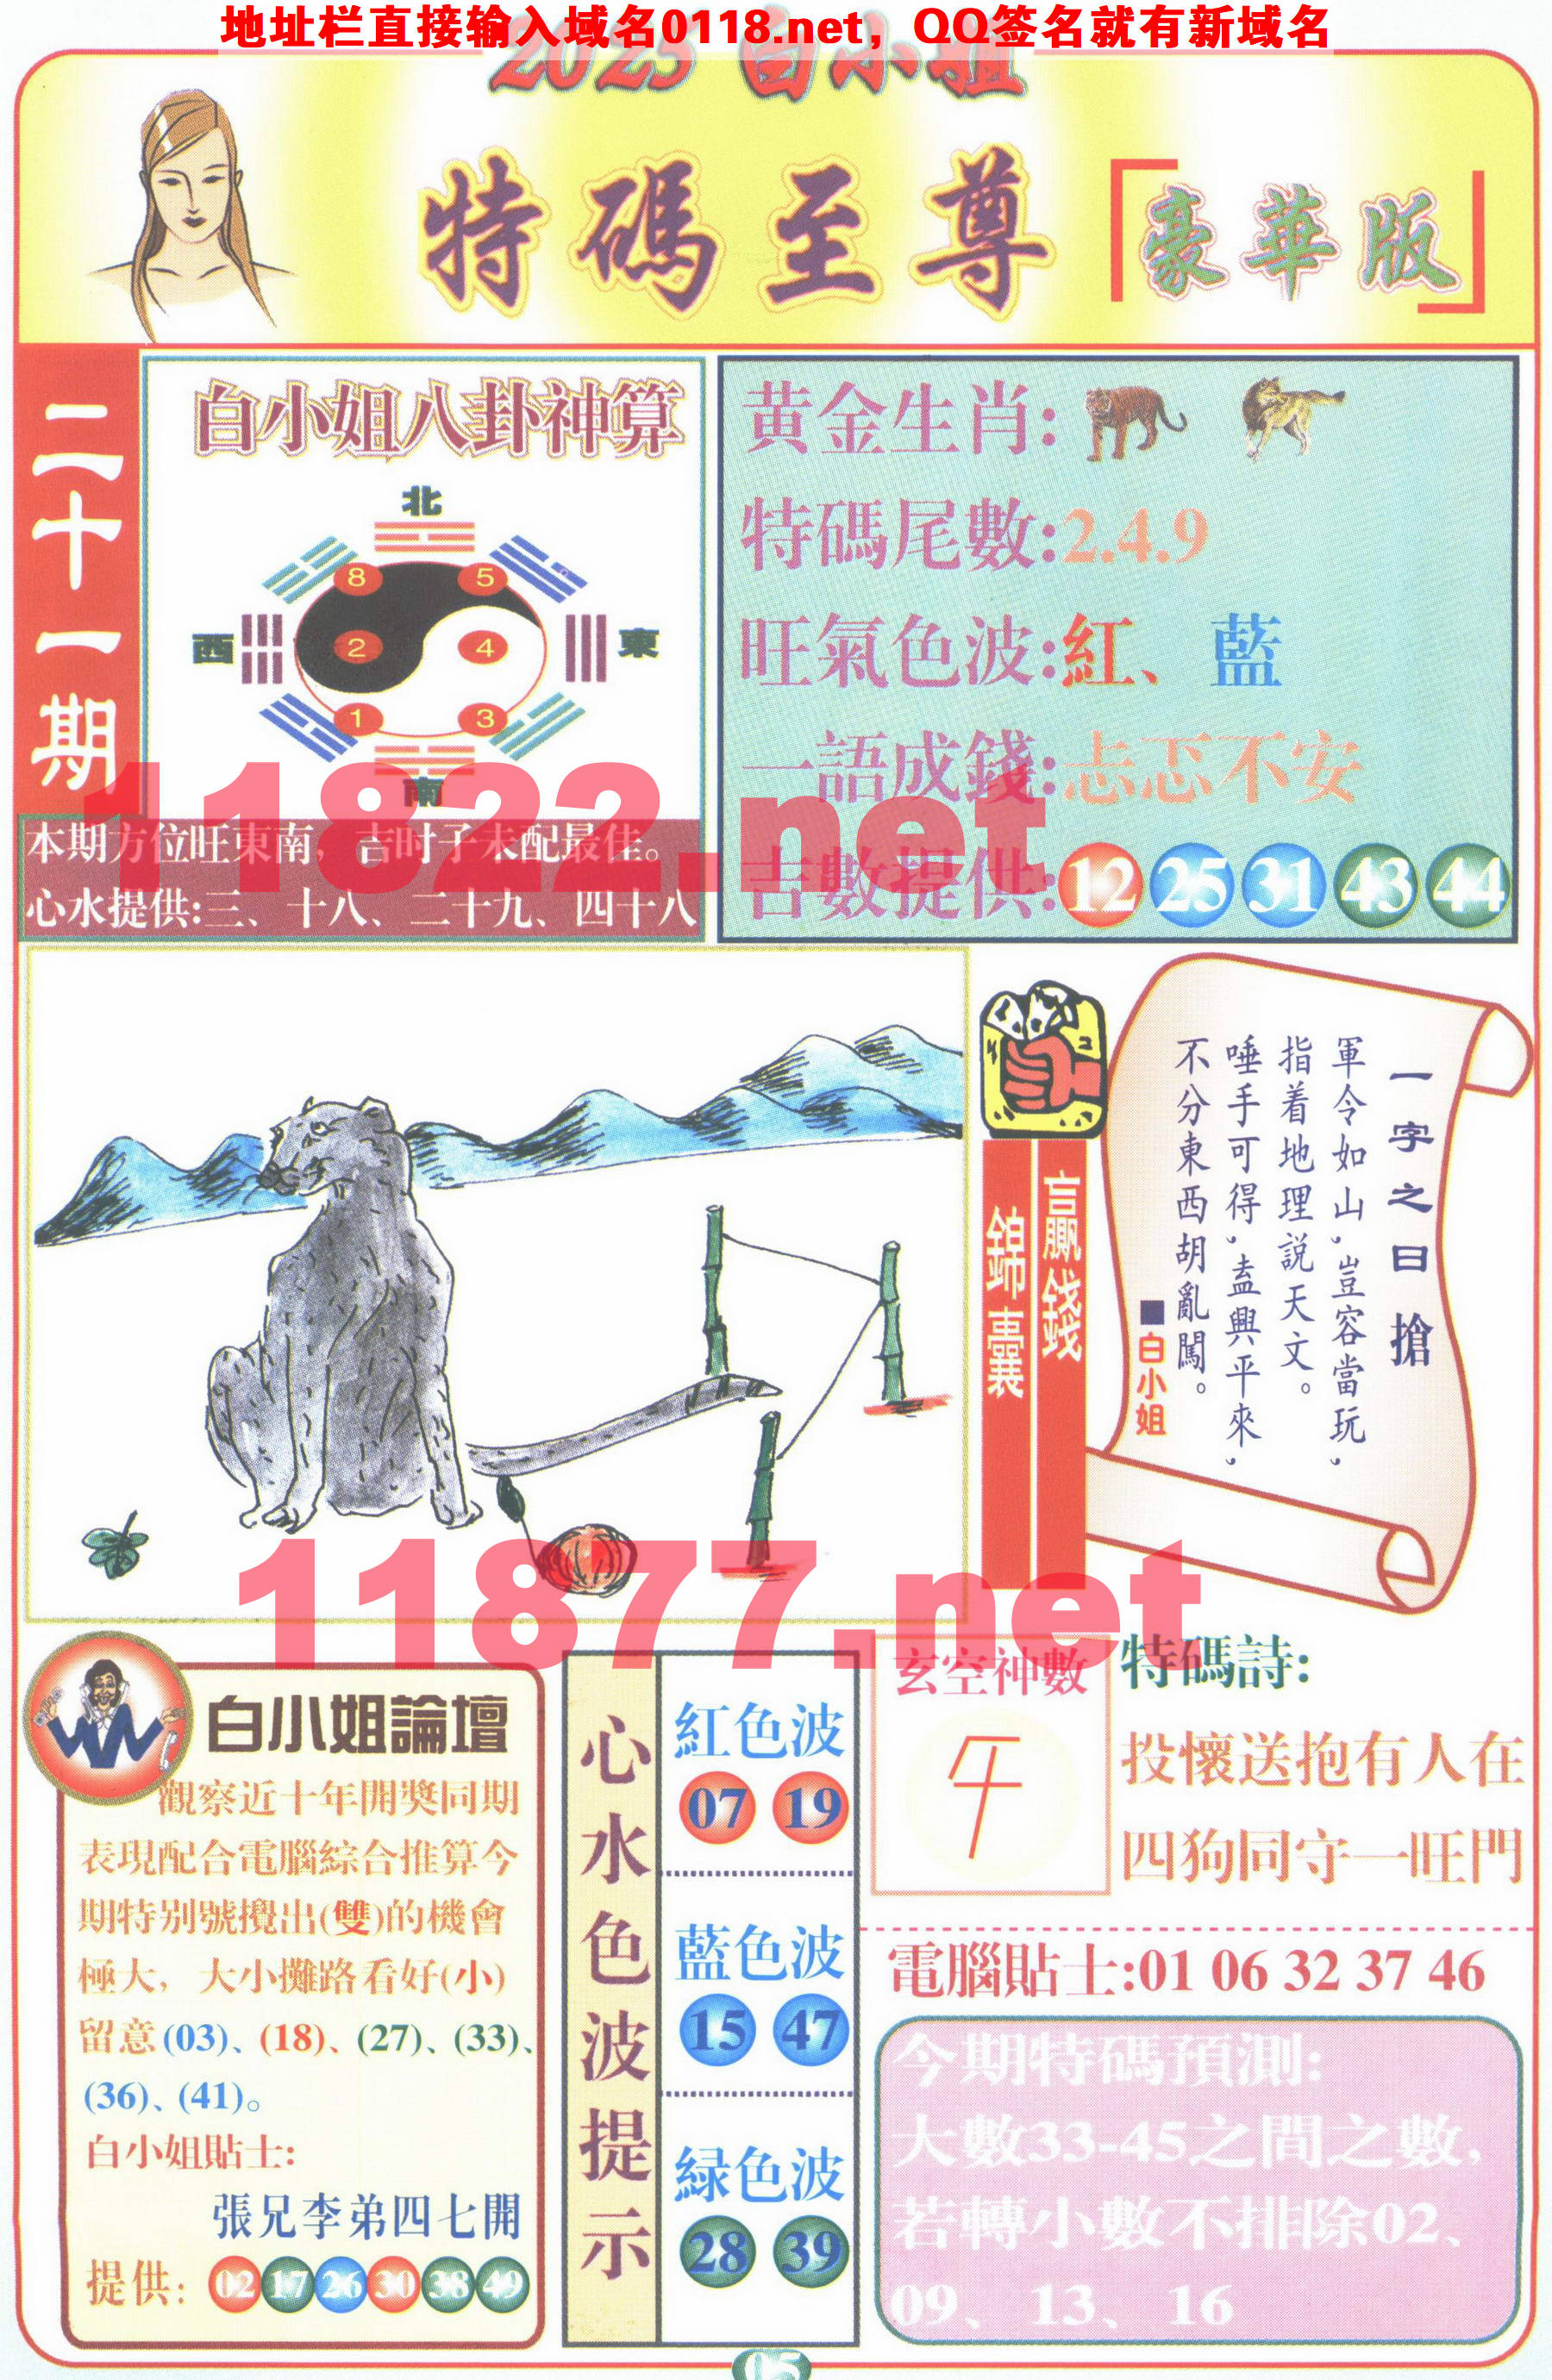 地址栏直接输入域名0118.net，QQ签名就有新域名
2025 白小姐
特碼至尊「豪華版」
二十一期
白小姐八卦神算
北
8 5
西 2 4 東
1 3
南
本期方位旺東南，吉时子未配最佳。
心水提供:三、十八、二十九、四十八
黄金生肖:
特碼尾數:2.4.9
旺氣色波:紅、藍
一語成錢:忐忑不安
吉數提供:12 25 31 43 44
11822.net
贏錢
錦囊
一字之曰 搶
軍令如山,豈容當玩,
指着地理説天文。
唾手可得,盍興平來,
不分東西胡亂闖。
■白小姐
11877.net
白小姐論壇
觀察近十年開獎同期
表現配合電腦綜合推算今
期特别號攪出(雙)的機會
極大，大小攤路看好(小)
留意(03)、(18)、(27)、(33)、
(36)、(41)。
白小姐貼士:
張兄李弟四七開
提供: 02 17 26 30 38 49
心水色波提示
紅色波
07 19
藍色波
15 47
緑色波
28 39
玄空神數
特碼詩:
投懷送抱有人在
四狗同守一旺門
電腦貼士:01 06 32 37 46
今期特碼預測:
大數33-45之間之數,
若轉小數不排除02、
09、13、16